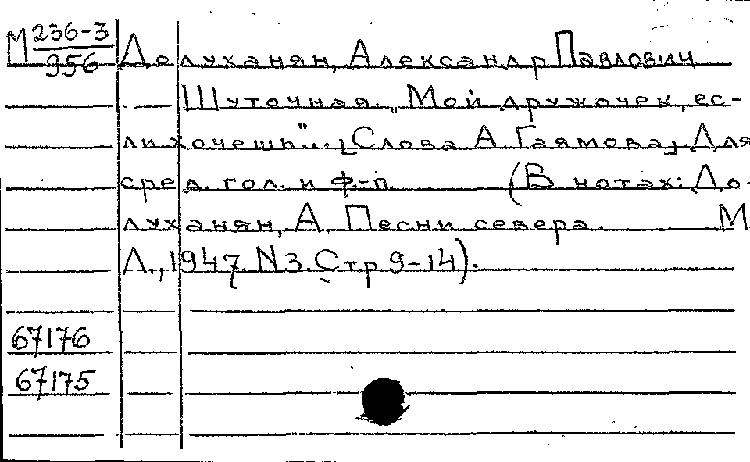 М 236-3
956
Долуханян, Александр Павлович
Шуточная. „Мой дружочек, ес-
ли хочешь"... [Слова А. Гаямова]. Для
сред. гол. и ф-п. (В нотах: До-
луханян, А. Песни севера. М.
Л., 1947. N3. Стр 9-14).
67176
67175